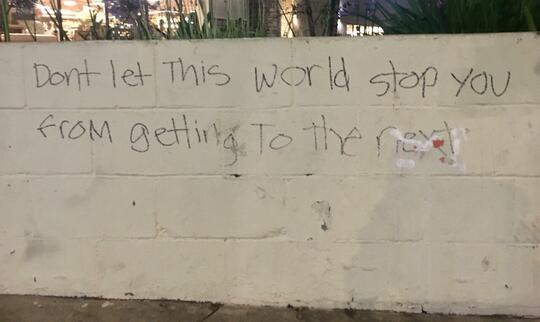 Dont let This world stop you
from getting To the next